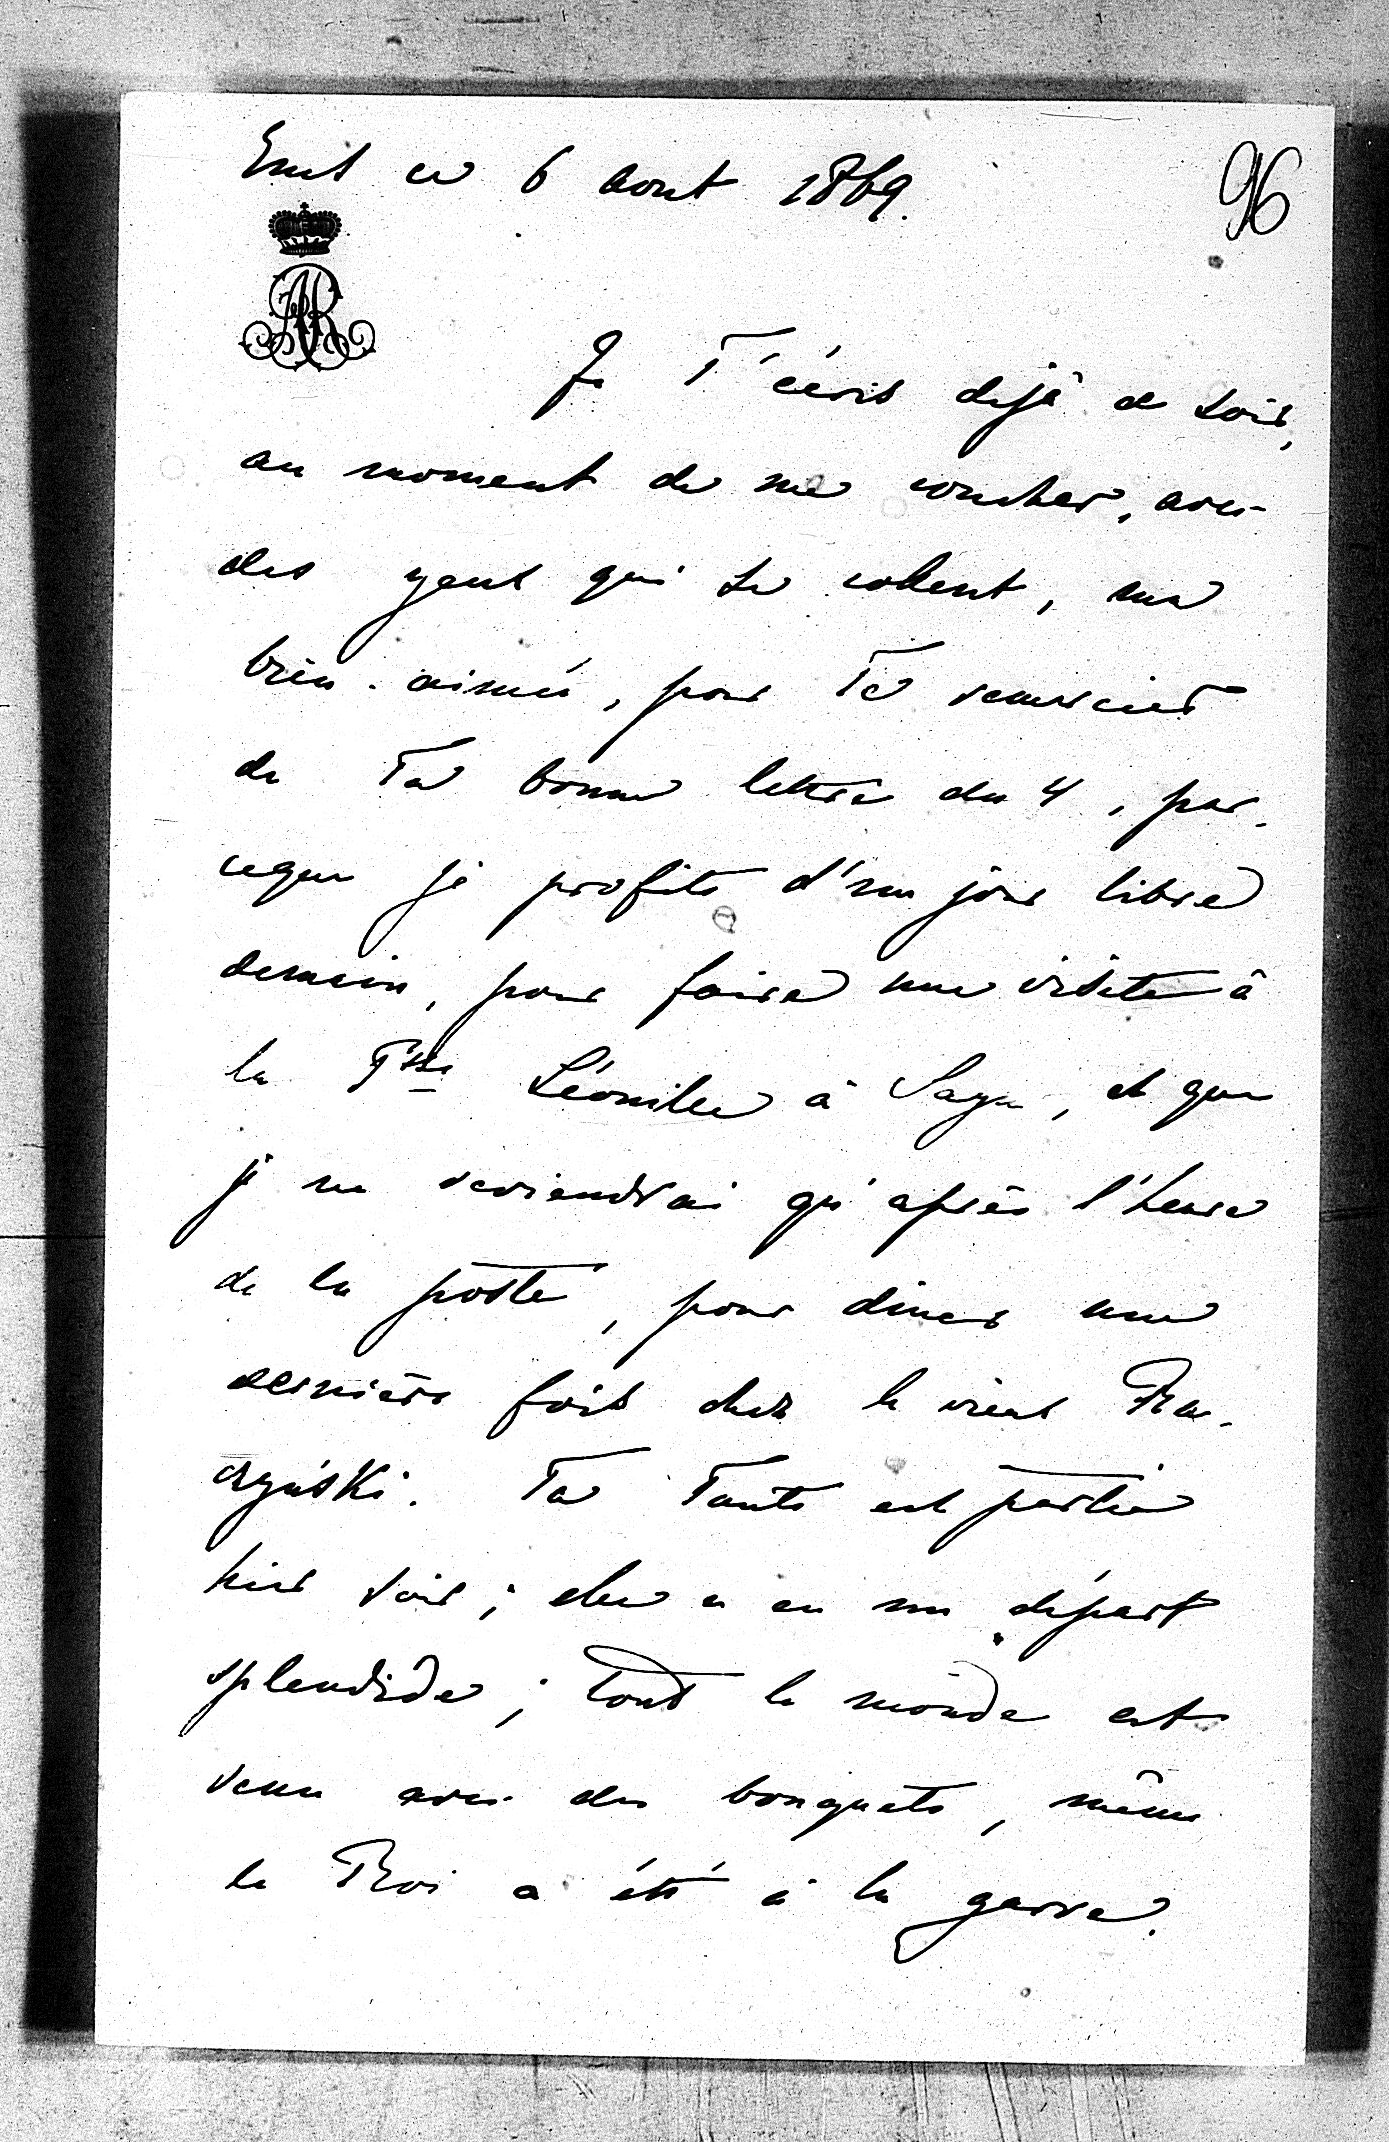 Ems ce 6 aout 1869.
96
AR
Je T'écris dejà ce soir,
au moment de me coucher, avec
des yeux qui se collent, ma
bien-aimée, pour Te remercier
de Ta bonne lettre du 4, par-
ceque je profite d'un jour libre
demain, pour faire une visite à
la Psse Léonille à Sayn, et que
je ne reviendrai qu'après l'heure
de la poste, pour diner une
dernière fois chez le vieux Rac-
zyński. Ta Tante est partie
hier soir; elle a eu un départ
splendide; tout le monde est
venu avec des bouquets, même
le Roi a été à la garre.